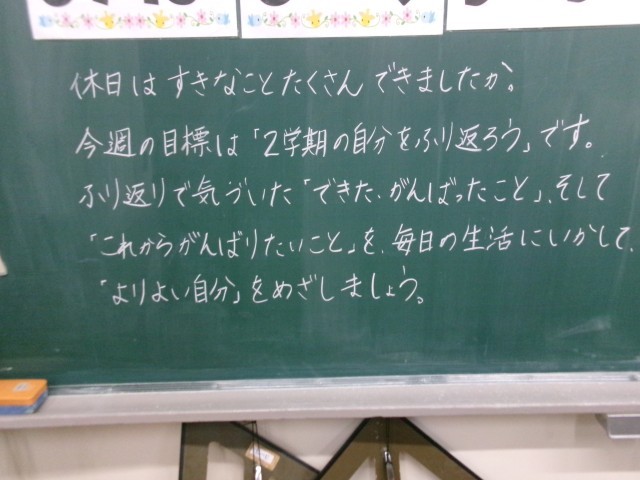 休日はすきなことたくさんできましたか。
今週の目標は「2学期の自分をふり返ろう」です。
ふり返りで気づいた「できた、がんばったこと」、そして
「これからがんばりたいこと」を、毎日の生活にいかして、
「よりよい自分」をめざしましょう。